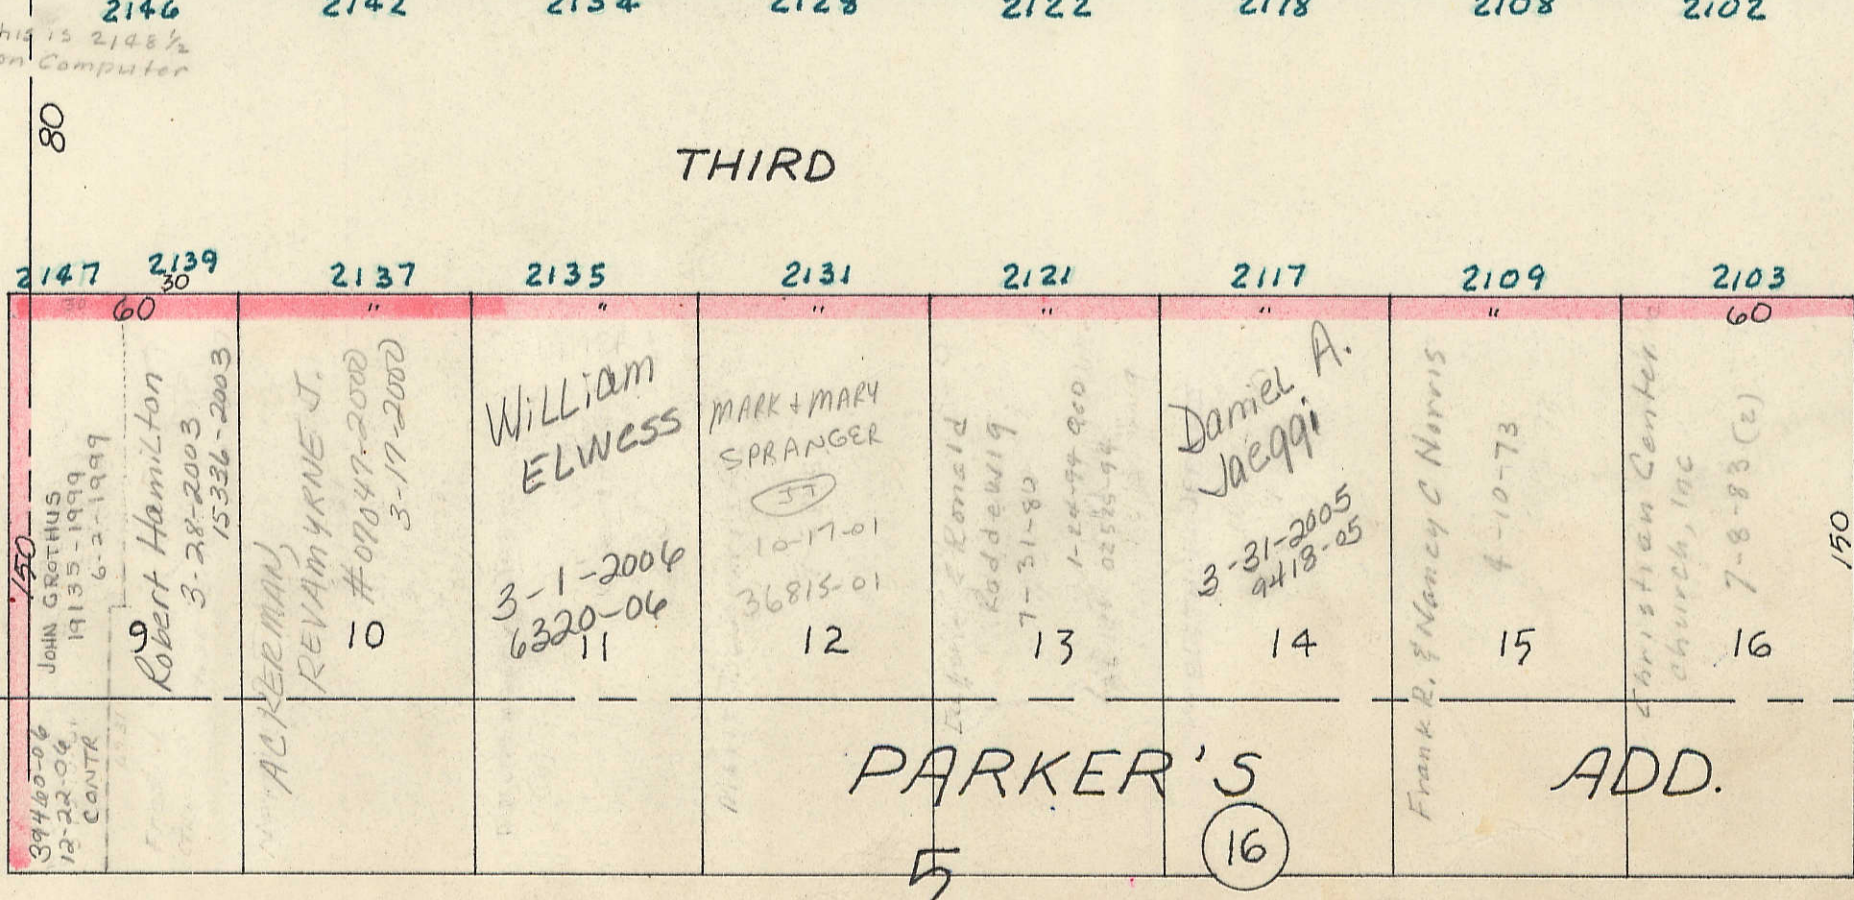 2146 2142 2134 2128 2122 2118 2108 2102
his is 2148½
on Computer
80
THIRD
2147 2139 2137 2135 2131 2121 2117 2109 2103
30
30 60 " " " " " " 60
150
JOHN GROTHUS
19135-1999
6-2-1999
39460-06
12-22-06
CONTR
9
Robert Hamilton
3-28-2003
15336-2003
ACKERMAN,
REVAMYRNE J.
#07047-2000
3-17-2000
10
William
Elwess
3-1-2006
6320-06
11
MARK & MARY
SPRANGER
JT
10-17-01
36815-01
12
Ronald
Raddewig
7-31-80
1-24-94 960
02526-94
13
Daniel A.
Jaeggi
3-31-2005
9418-05
14
Frank R. & Nancy C Norris
4-10-73
15
Christian Center
Church, Inc
7-8-83 (2)
16
150
PARKER'S ADD.
5
16